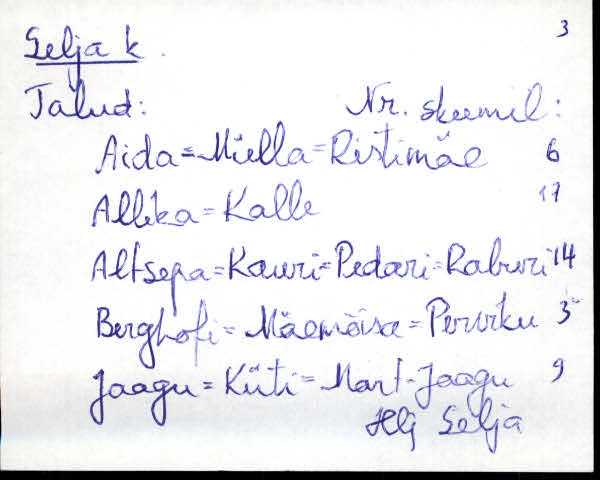 3
Selja k.
Talud: Nr. skeemil:
Aida = Miella = Ristimäe 6
Allika = Kalle 17
Altsepa = Kauri = Pedari = Raburi 14
Berghofi = Mäemõisa = Perviku 3
Jaagu = Küti = Mart-Jaagu 9
Hlj Selja